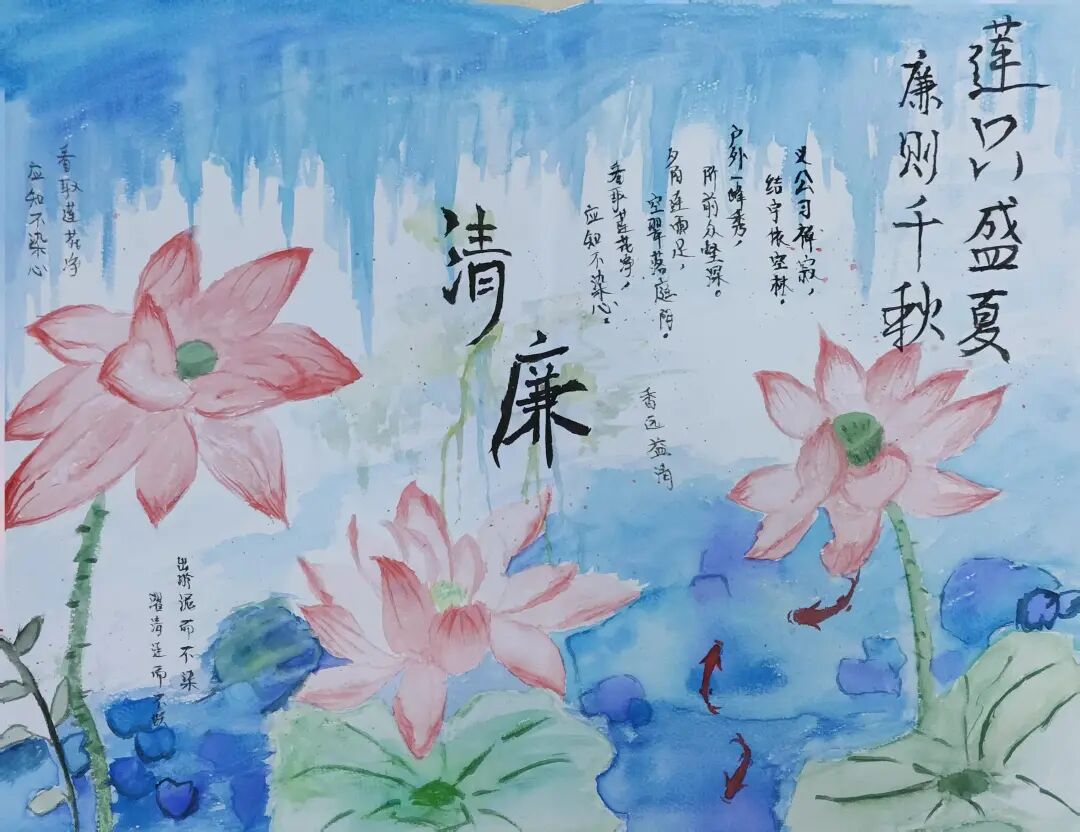 莲只盛夏
廉则千秋
义公习禅寂，
结宇依空林。
户外一峰秀，
阶前众壑深。
夕阳连雨足，
空翠落庭阴。
看取莲花净，
应知不染心。
清廉
香远益清
看取莲花净
应知不染心
出淤泥而不染
濯清涟而不妖